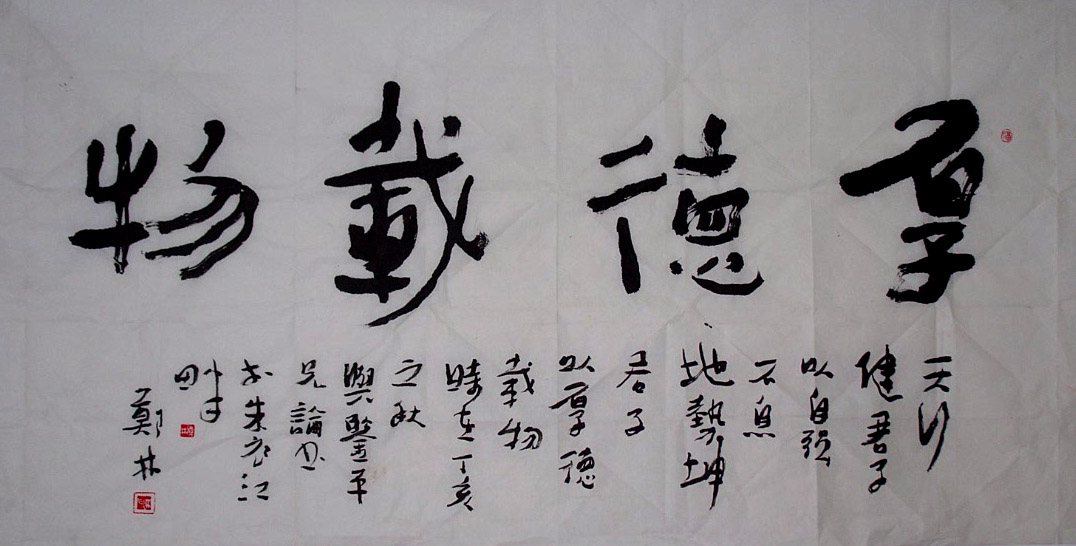 厚德載物
天行
健君子
以自强
不息
地勢坤
君子
以厚德
載物
時在丁亥
之秋
與鑒平
兄論書
於朱江
畔
鄭林